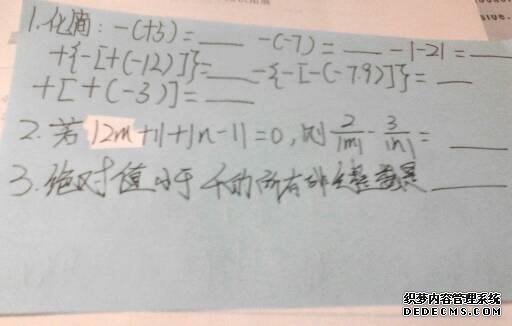 1.化简: -(+5)=___ -(-7)=___ -|-2|=___
+{-[+(-12)]}=___ -{-[-(-7.9)]}=___
+[+(-3)]=___
2.若|2m+1|+|n-1|=0,则2/|m|-3/|n|=___
3.绝对值小于4的所有非负整数是___
织梦内容管理系统
DEDECMS.COM